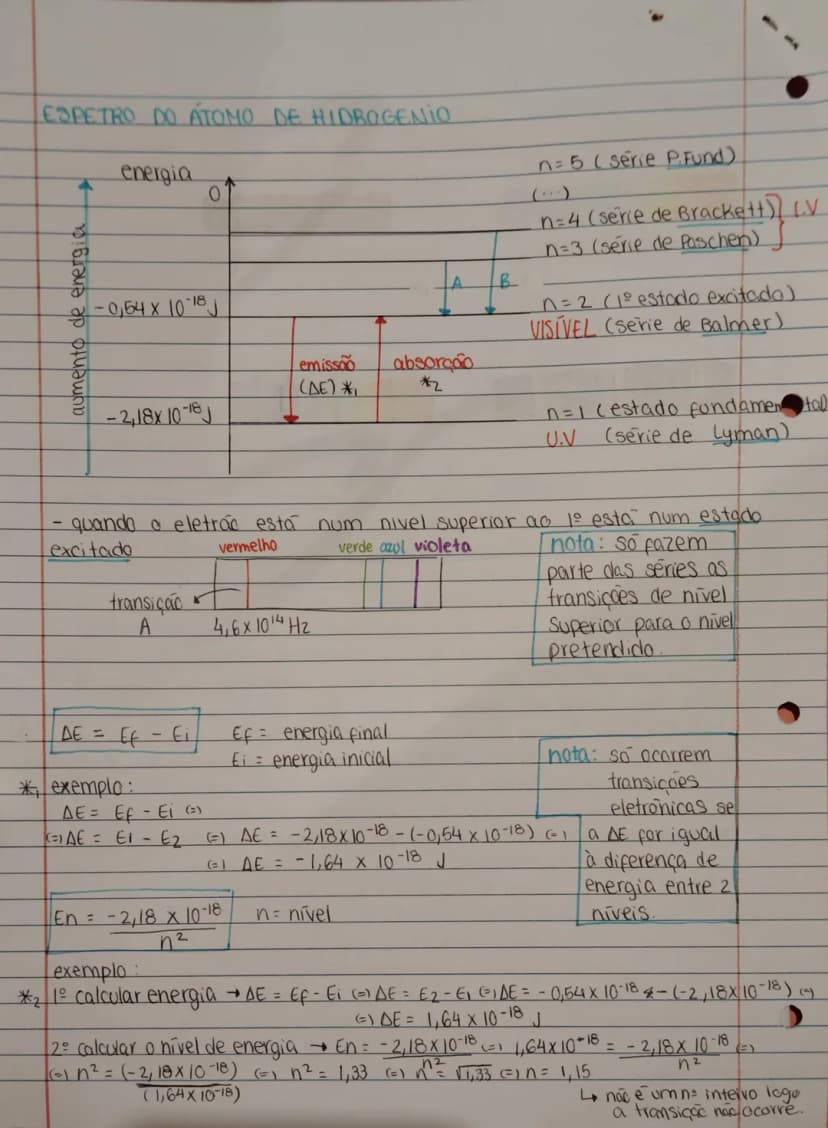 ESPETRO DO ÁTOMO DE HIDROGENIO
energia
0
aumento de energia
n=5 (série P.Fund)
(...)
n=4 (série de Brackett)
n=3 (série de Paschen)
I.V
A
B
-0,54 x 10⁻¹⁸ J
n=2 (1º estado excitado)
VISÍVEL (série de Balmer)
emissão
(ΔE) *₁
absorção
*₂
-2,18x10⁻¹⁸ J
n=1 (estado fundamental)
U.V (série de Lyman)
- quando o eletrão está num nivel superior ao 1º está num estado
excitado
vermelho verde azul violeta
transição
A
4,6x10¹⁴ Hz
nota: só fazem
parte das séries as
transições de nível
superior para o nível
pretendido.
ΔE = Ef - Ei
Ef = energia final
Ei = energia inicial
nota: só ocorrem
transições
eletrónicas se
a ΔE for igual
à diferença de
energia entre 2
níveis.
*₁ exemplo:
ΔE = Ef - Ei (=)
(=) ΔE = E1 - E2 (=) ΔE = -2,18x10⁻¹⁸ - (-0,54 x 10⁻¹⁸) (=)
(=) ΔE = -1,64 x 10⁻¹⁸ J
En = -2,18 x 10⁻¹⁸ / n²
n = nível
exemplo:
*₂ 1º calcular energia → ΔE = Ef - Ei (=) ΔE = E2 - E1 (=) ΔE = -0,54 x 10⁻¹⁸ - (-2,18x10⁻¹⁸) (=)
(=) ΔE = 1,64 x 10⁻¹⁸ J
2º calcular o nível de energia → En = -2,18x10⁻¹⁸ / n² (=) 1,64x10⁻¹⁸ = -2,18 x 10⁻¹⁸ / n² (=)
(=) n² = (-2,18x10⁻¹⁸) / (1,64x10⁻¹⁸) (=) n² = 1,33 (=) n² = √1,33 (=) n = 1,15
↳ não é um nº inteiro logo
a transição não ocorre.